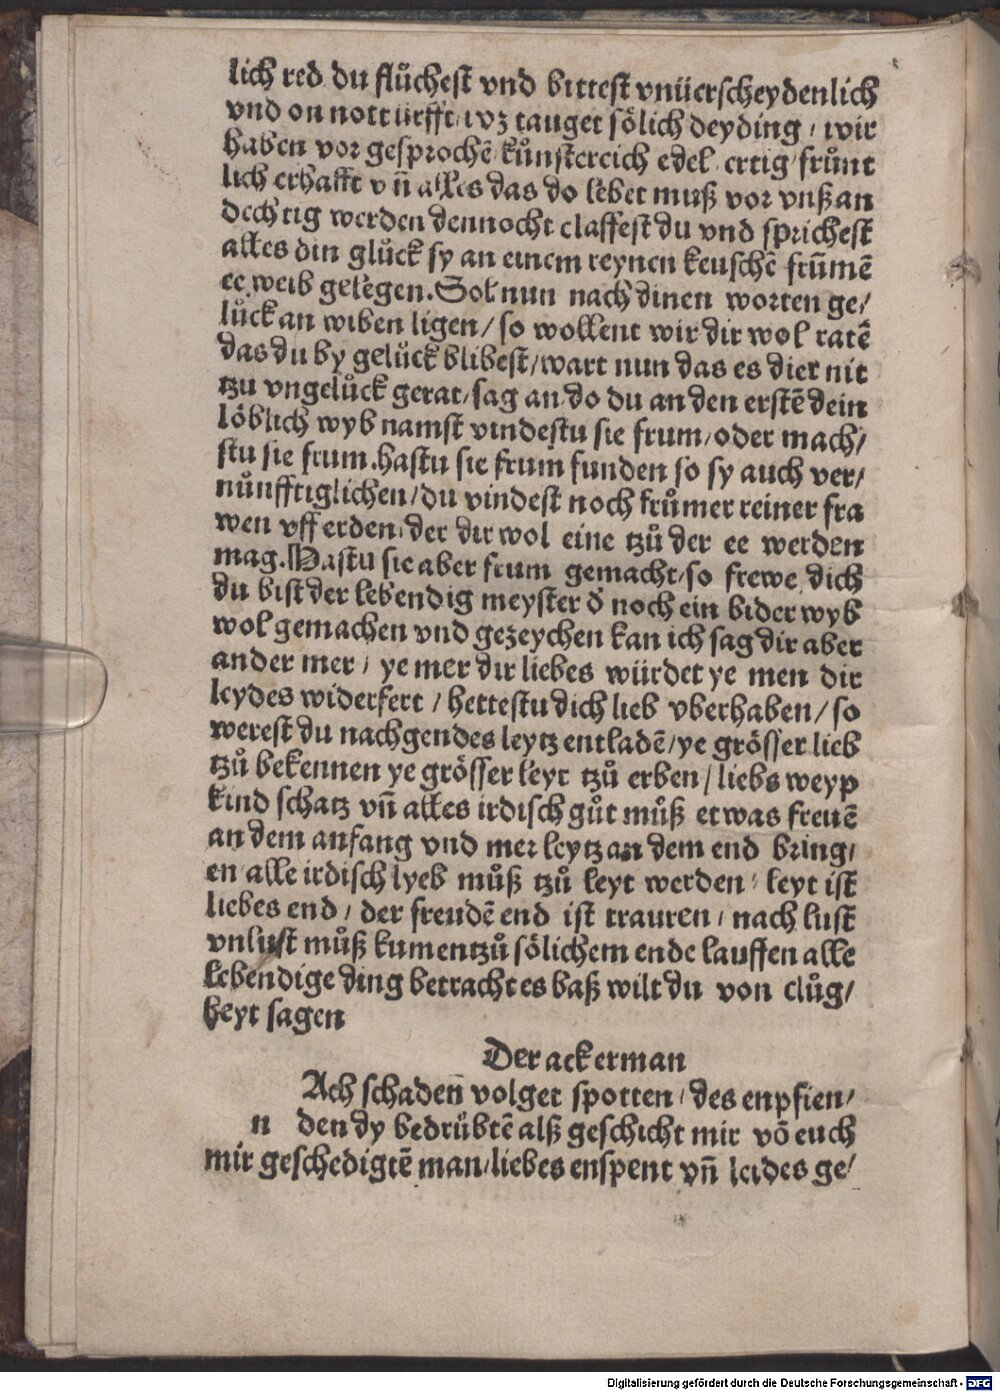 lich red du flůchest vnd bittest vnüerscheydenlich
vnd on notturfft / wz tauget sölich deyding / wir
haben vor gesprochē kůnstereich edel ertig frůnt
lich erhafft vñ alles das do lebet muß vor vnß an
dechtig werden dennocht claffest du vnd sprichest
alles din glůck sy an einem reynen keuschē frūmē
ee weib gelegen. Sol nun nach dinen worten ge/
lůck an wiben ligen / so wollent wir dir wol ratē
das du by gelůck blibest / wart nun das es dier nit
tzu vngelůck gerat / sag an do du an den erstē dein
löblich wyb namst vindestu sie frum / oder mach/
stu sie frum. hastu sie frum funden so sy auch ver/
nůnfftiglichen / du vindest noch frůmer reiner fra
wen vff erden / der dir wol eine tzů der ee werden
mag. Hastu sie aber frum gemacht / so frewe dich
du bist der lebendig meyster d̄ noch ein bider wyb
wol gemachen vnd gezeychen kan ich sag dir aber
ander mer / ye mer dir liebes würdet ye men dir
leydes widerfert / hettestu dich lieb vberhaben / so
werest du nachgendes leytz entladē / ye grösser lieb
tzů bekennen ye grösser leyt tzů erben / liebs weyp
kind schatz vñ alles irdisch gůt můß etwas freuē
an dem anfang vnd mer leytz an dem end bring/
en alle irdisch lyeb můß tzů leyt werden / leyt ist
liebes end / der freudē end ist trauren / nach lust
vnlust můß kumen tzů sölichem ende lauffen alle
lebendige ding betracht es baß wilt du von clůg/
heyt sagen
Der ackerman
Ach schaden volget spotten / des enpfien/
n den dy bedrübtē alß geschicht mir vō euch
mir geschedigtē man / liebes enspent vñ leides ge/
Digitalisierung gefördert durch die Deutsche Forschungsgemeinschaft - DFG